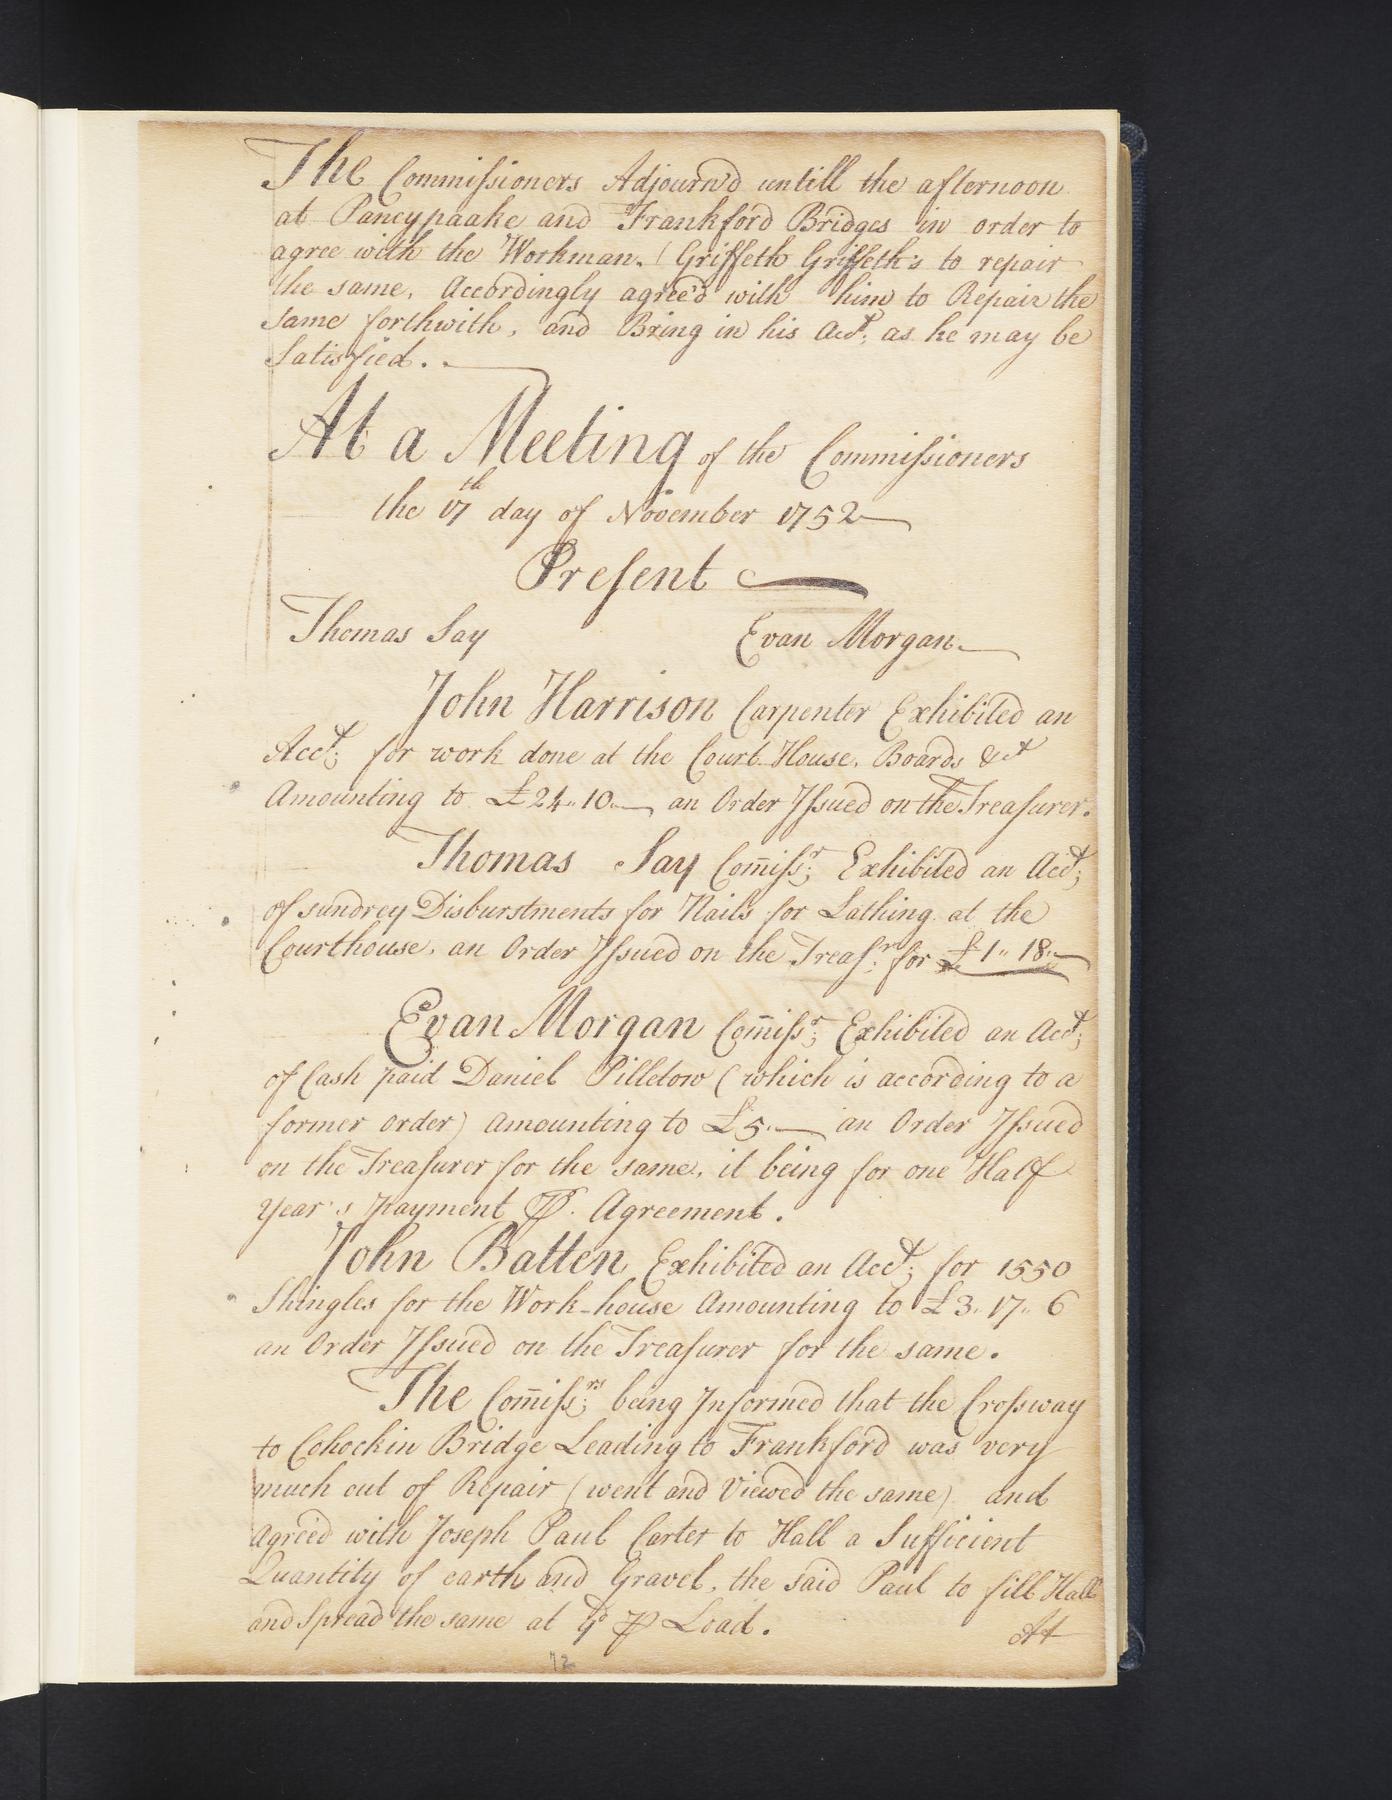 The Commissioners Adjourn'd untill the afternoon
at Pancypaake and Frankford Bridges in order to
agree with the Workman. (Griffeth Griffeth's to repair
the same. Accordingly agree'd with him to Repair the
same forthwith, and Bring in his Acct; as he may be
Satisfied.
At a Meeting of the Commissioners
the 17th day of November 1752
Present
Thomas Say Evan Morgan
John Harrison Carpenter Exhibited an
Acct; for work done at the Court House, Boards &ct
Amounting to £24.. 10.. an Order Issued on the Treasurer.
Thomas Say Com̅issr; Exhibited an Acct;
of sundrey Disburstments for Nails for Lathing at the
Courthouse, an Order Issued on the Treasr; for £1.. 18..
Evan Morgan Com̅issr; Exhibited an Acct;
of Cash paid Daniel Pilletow (which is according to a
former order) amounting to £5.. an Order Issued
on the Treasurer for the same, it being for one Half
Year's payment ⅌ Agreement.
John Batten Exhibited an Acct; for 1550
Shingles for the Work-house Amounting to £3.. 17.. 6
an Order Issued on the Treasurer for the same.
The Com̅issrs; being Informed that the Crossway
to Cohockin Bridge Leading to Frankford was very
much out of Repair (went and Viewed the same) and
Agreed with Joseph Paul Carter to Hall a Sufficient
Quantity of earth and Gravel, the said Paul to fill Hall
and Spread the same at 9d ⅌ Load.
At
72